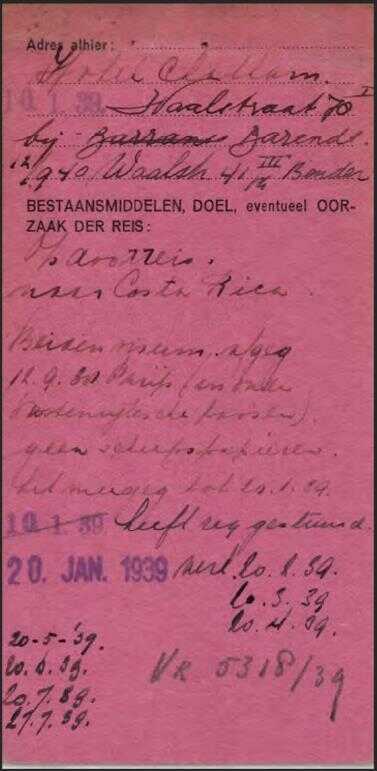 Adres alhier:
Hotel
10 1. 39. Waalstraat 70 I
bij Barends.
1940 Waalstr 41 III Bender
BESTAANSMIDDELEN, DOEL, eventueel OOR-
ZAAK DER REIS:
Op doorreis.
naar Costa Rica.
visum, afgeg
12. 9. 38 Parijs
geen scheepspapieren.
tot 20. 1. 39.
10 1. 39 heeft reg gestuurd.
20. JAN. 1939 verl. 20. 2. 39.
20. 3. 39
20. 4. 39.
20-5-'39.
20. 6. 39.
20. 7. 39.
27. 7. 39.
VR 5318/39